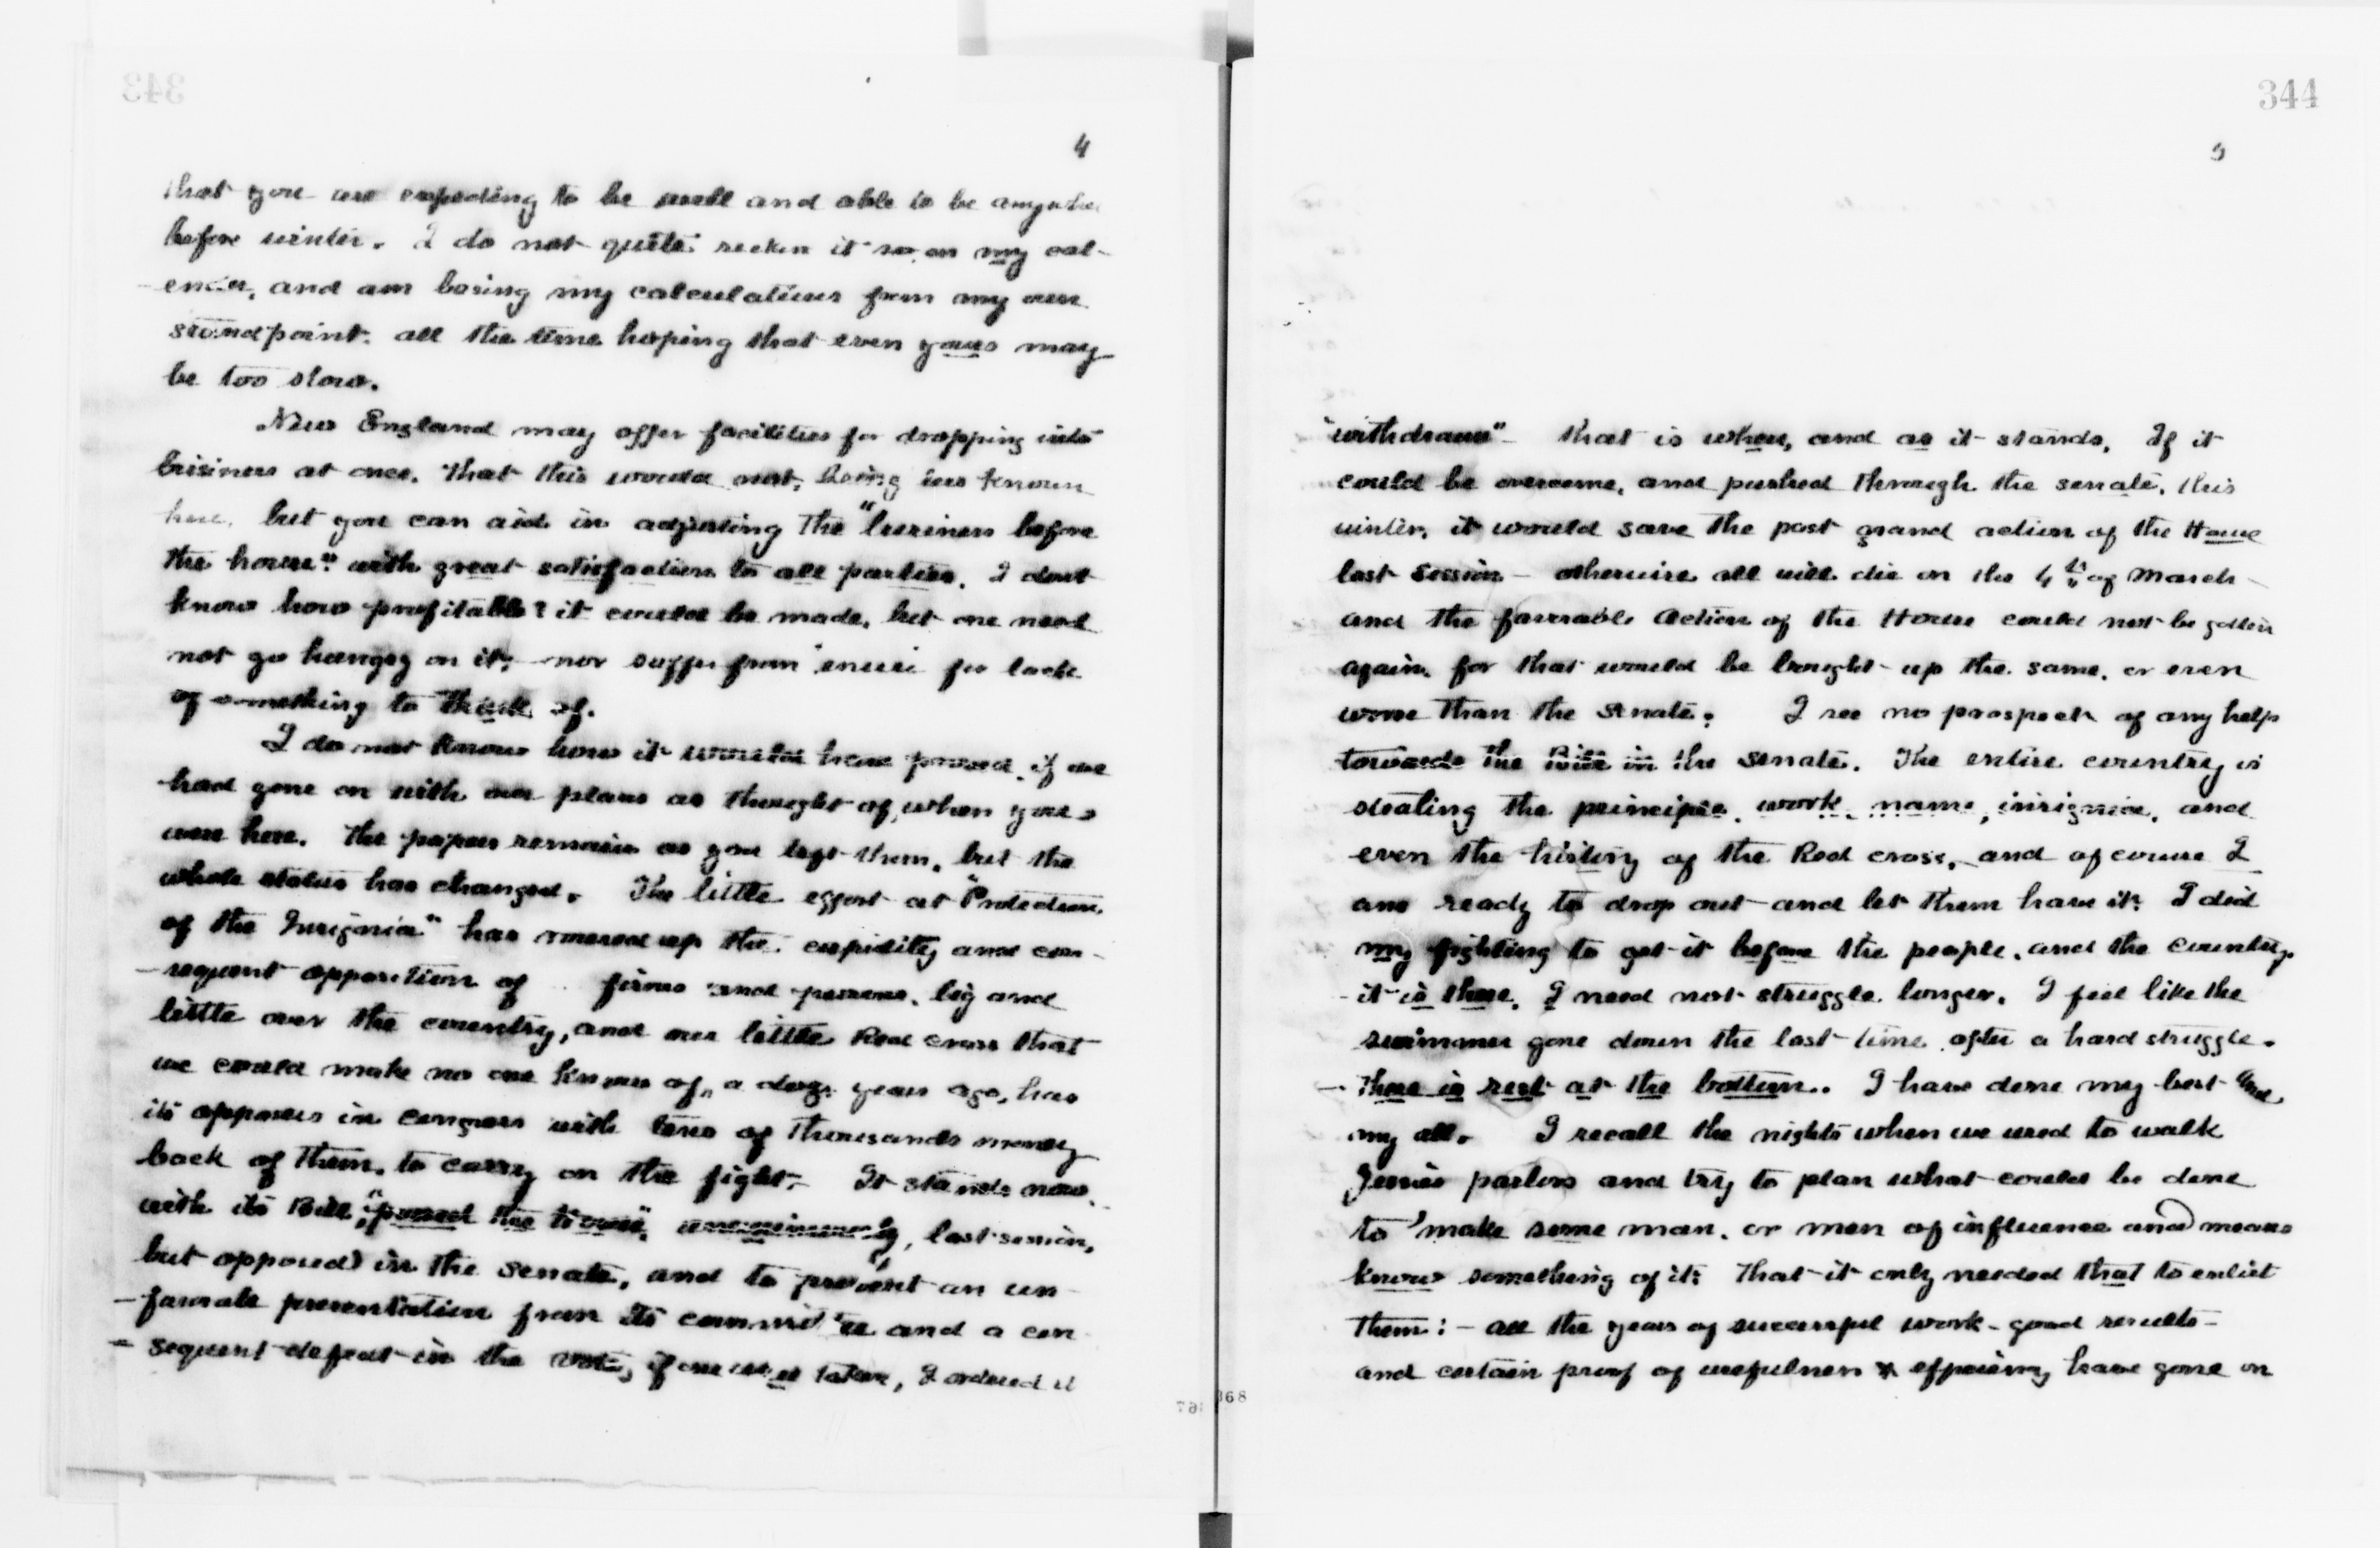 343
4
that you are expecting to be well and able to be anywhe
before winter. I do not quite reckon it so on my cal-
-ender, and am basing my calculations from my own
standpoint. all the time hoping that even yours may
be too slow.
New England may offer facilities for dropping into
business at once. that this would not, being less known
here, but you can aid in adjusting the "business before
the house" with great satisfaction to all parties. I dont
know how profitable it could be made, but one need
not go hungry on it; nor suffer from ennui for lack
of something to think of.
I do not know how it would have proved, if we
had gone on with our plans as thought of, when you
were here. The papers remain as you left them, but the
whole status has changed. The little effort at "Protection
of the Insignia" has roused up the cupidity and con-
-sequent opposition of firms and persons, big and
little over the country, and our little Red Cross that
we could make no one know of, a doz. years ago, has
its opposers in congress with tens of thousands money
back of them, to carry on the fight. It stands now
with its Bill, "passed the House", unanimously, last session,
but opposed in the Senate, and to prevent an un-
-favorable presentation from its committee and a con
-sequent defeat in the vote, if one were taken, I ordered it
344
5
"withdrawn" that is when, and as it stands. If it
could be overcome, and pushed through the senate, this
winter, it would save the past grand action of the House
last Session - otherwise all will die on the 4th of March -
and the favorable action of the House could not be gotten
again, for that would be bought up the same, or even
worse than the Senate. I see no prospect of any help
towards the Bill in the Senate. The entire country is
stealing the principle, work, name, insignia, and
even the history of the Red cross, and of course I
am ready to drop out and let them have it. I did
my fighting to get it before the people, and the country.
it is there, I need not struggle longer. I feel like the
swimmer gone down the last time after a hard struggle.
- There is rest at the bottom. I have done my best and
my all. I recall the nights when we used to walk
Jennies parlors and try to plan what could be done
to make some man, or men of influence and means
know something of it; that it only needed that to enlist
them: - all the years of successful work - good results -
and certain proof of usefulness & efficiency have gone on
368